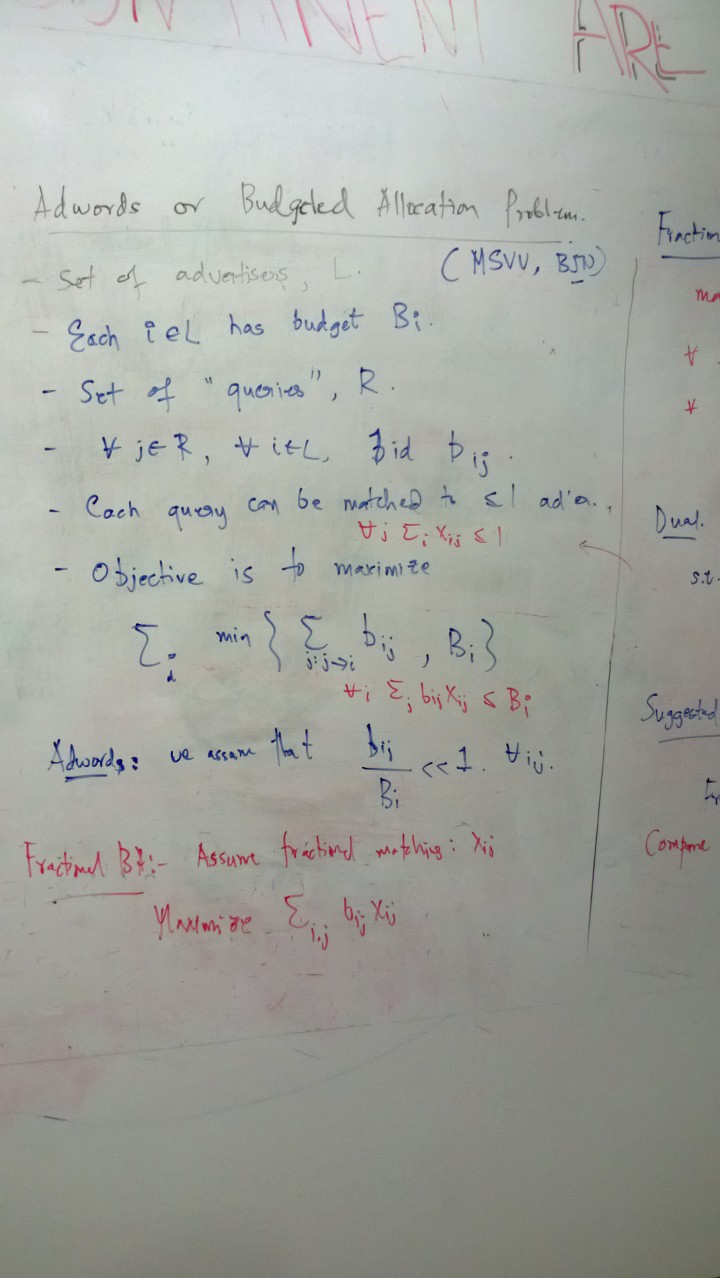 ARE
Adwords or Budgeted Allocation Problem.
(MSVV, BJN)
- Set of advertisers, L.
- Each i∈L has budget Bi.
- Set of "queries", R.
- ∀ j∈R, ∀ i∈L, Bid bij.
- Each query can be matched to ≤1
∀j Σi xij ≤ 1
- Objective is to maximize
Σi min { Σj:j→i bij , Bi }
∀i Σj bij xij ≤ Bi
Adwords: we assum that bij/Bi <<1. ∀ij.
Fractional :- Assume fractional matching: xij
Maximize Σi,j bij xij
Fraction
ma
∀
∀
Dual.
s.t.
Suggested
Compare